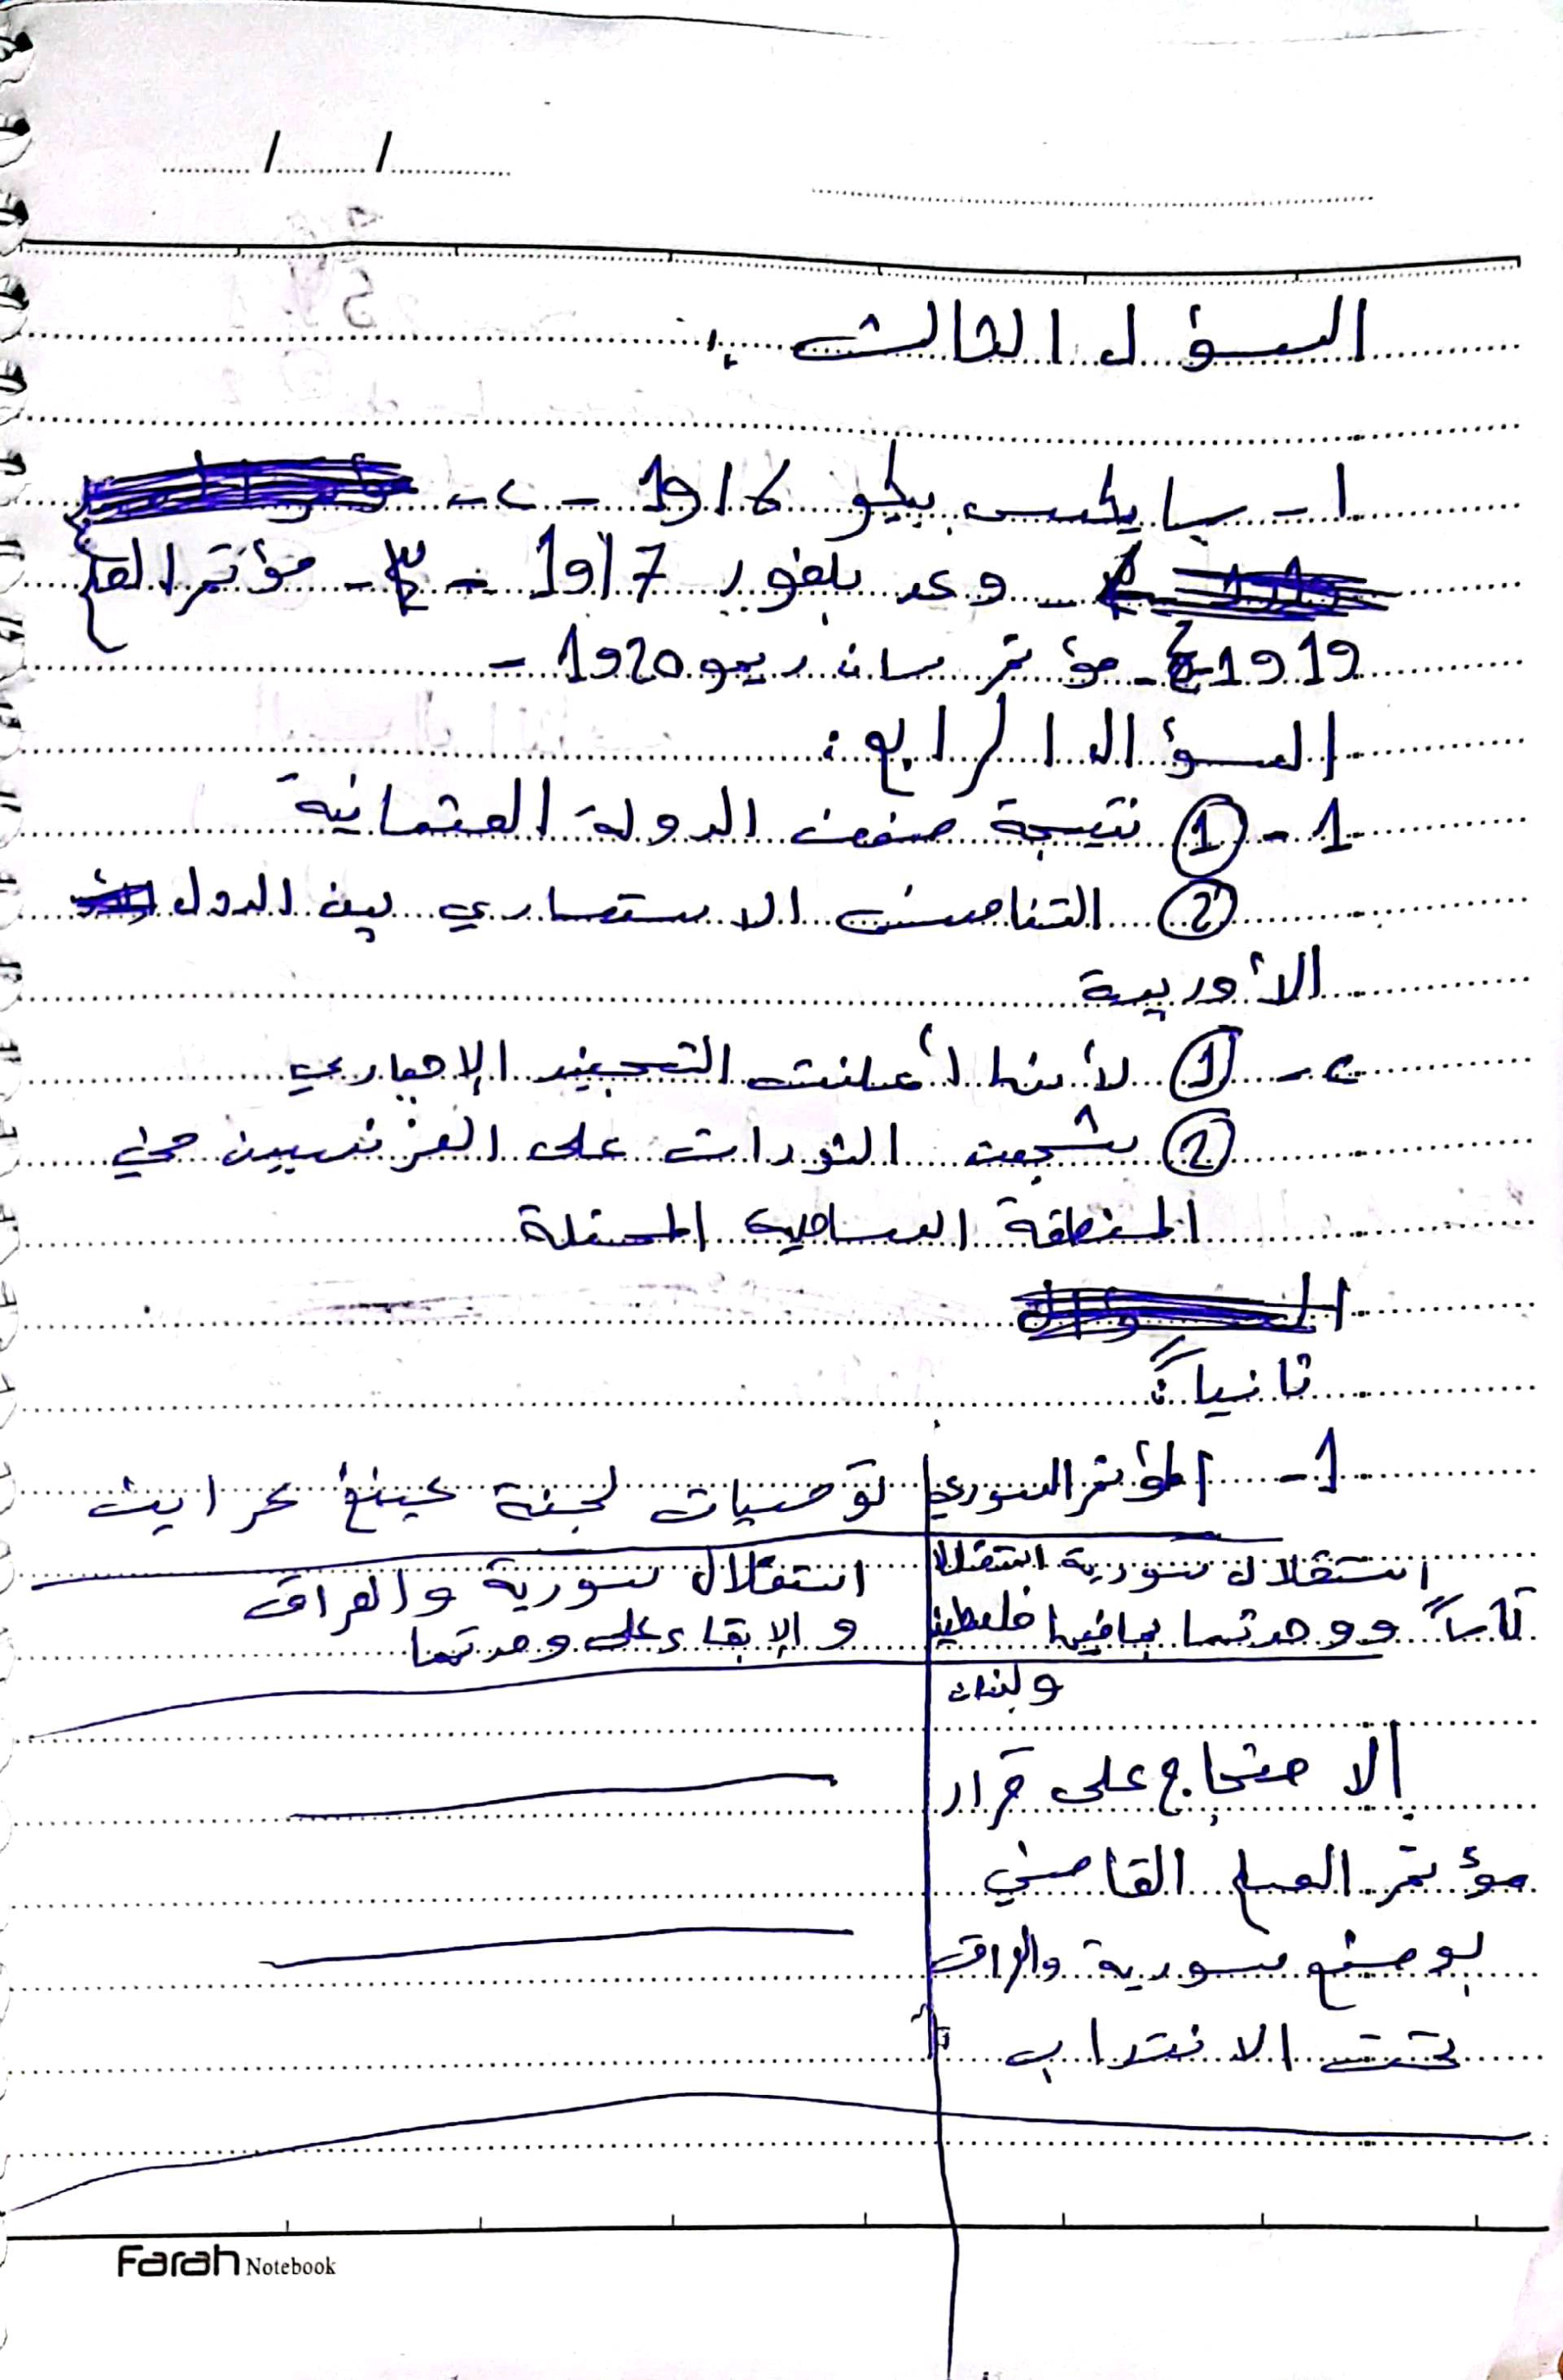 السؤل الثالث :
١ - سايكس بيكو 1916 - ٢ -
وعد بلفور 1917 - ٣ - مؤتمر الصلح
1919 ٤ - مؤتمر سان ريمو 1920 -
السؤال الرابع :
1 - ① نتيجة ضعف الدولة العثمانية
② التنافس الاستعماري بين الدول
الأوربية
٢ - ① لأنها أعلنت التجنيد الإجباري
② شجعت الثورات على الفرنسيين في
المنطقة الساحلية المحتلة
ثانياً :
1 - المؤتمر السوري توصيات لجنة كينغ كراين
استقلال سورية استقلالا استقلال سورية والعراق
تاماً ووحدتها بما فيها فلسطين والإبقاء على وحدتهما
ولبنان
الاحتجاج على قرار
مؤتمر الصلح القاضي
بوضع سورية والعراق
تحت الانتداب
Farah Notebook